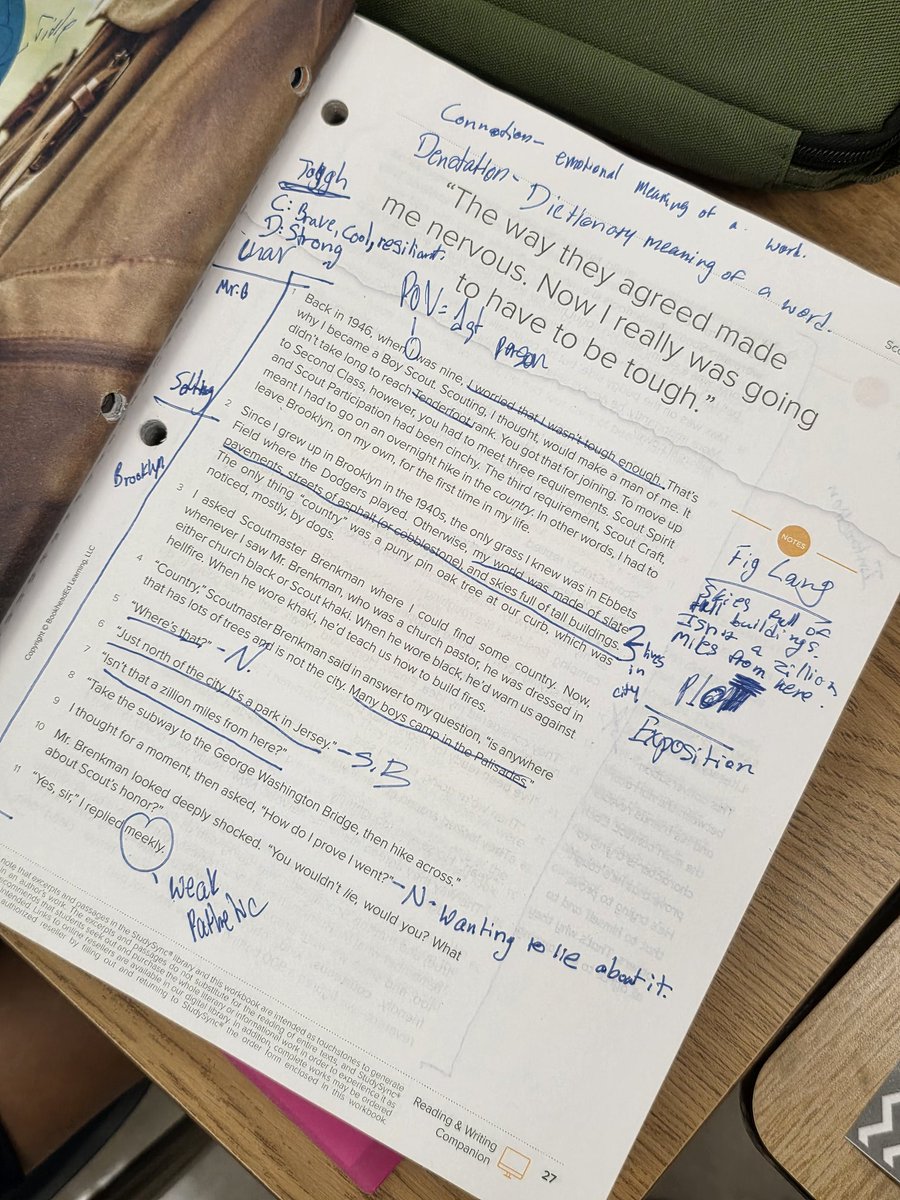 Connotion- emotional meaning of a word.
Denotation- Dictionary meaning of a word.
Tough
C: Brave, cool, resilient.
D: Strong
Char
Mr. B
Setting
Brooklyn
"The way they agreed made
me nervous. Now I really was going
to have to be tough."
POV = 1st person
1 Back in 1946, when I was nine, I worried that I wasn't tough enough. That's
why I became a Boy Scout. Scouting, I thought, would make a man of me. It
didn't take long to reach Tenderfoot rank. You got that for joining. To move up
to Second Class, however, you had to meet three requirements. Scout Spirit
and Scout Participation had been cinchy. The third requirement, Scout Craft,
meant I had to go on an overnight hike in the country. In other words, I had to
leave Brooklyn, on my own, for the first time in my life.
2 Since I grew up in Brooklyn in the 1940s, the only grass I knew was in Ebbets
Field where the Dodgers played. Otherwise, my world was made of slate
pavements, streets of asphalt (or cobblestone), and skies full of tall buildings.
The only thing "country" was a puny pin oak tree at our curb, which was
noticed, mostly, by dogs.
3 I asked Scoutmaster Brenkman where I could find some country. Now,
whenever I saw Mr. Brenkman, who was a church pastor, he was dressed in
either church black or Scout khaki. When he wore black, he'd warn us against
hellfire. When he wore khaki, he'd teach us how to build fires.
4 "Country," Scoutmaster Brenkman said in answer to my question, "is anywhere
that has lots of trees and is not the city. Many boys camp in the Palisades."
5 "Where's that?" - N
6 "Just north of the city. It's a park in Jersey." - S.B
7 "Isn't that a zillion miles from here?"
8 "Take the subway to the George Washington Bridge, then hike across."
9 I thought for a moment, then asked, "How do I prove I went?" - N - wanting to lie about it.
10 Mr. Brenkman looked deeply shocked. "You wouldn't lie, would you? What
about Scout's honor?"
11 "Yes, sir," I replied meekly.
weak
Pathetic
NOTES
Fig Lang
Skies full of
tall buildings.
Isn't a zillion
Miles from here.
lives
in
city
Plot
Exposition
Copyright © BookheadEd Learning, LLC
note that excerpts and passages in the StudySync® library and this workbook are intended as touchstones to generate
in an author's work. The excerpts and passages do not substitute for the reading of entire texts, and StudySync®
recommends that students seek out and purchase the whole literary or informational work in order to experience it as
intended. Links to online resellers are available in our digital library. In addition, complete works may be ordered
authorized reseller by filling out and returning to StudySync® the order form enclosed in this workbook.
Reading & Writing
Companion
27